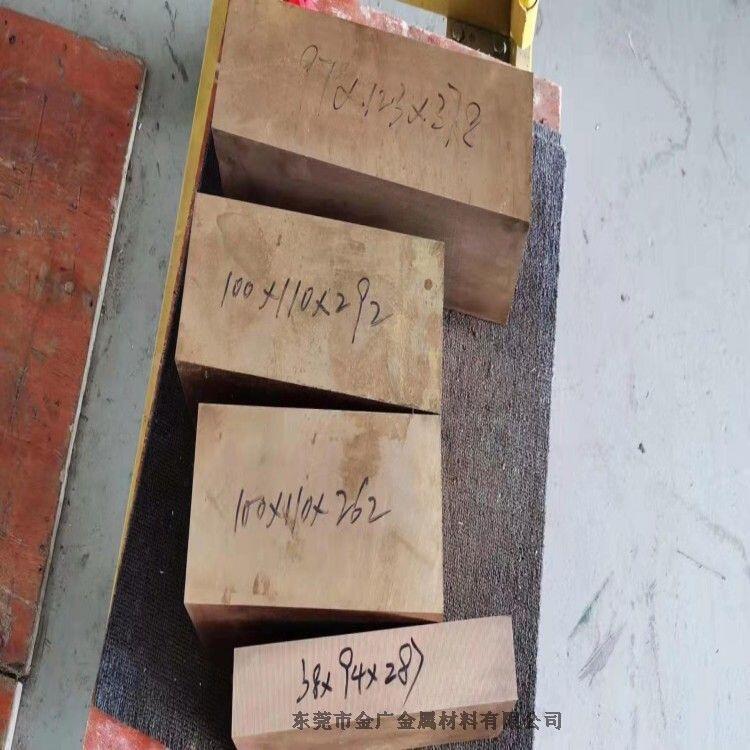 100x110x292
100x110x262
38x94x287
东莞市金广金属材料有限公司